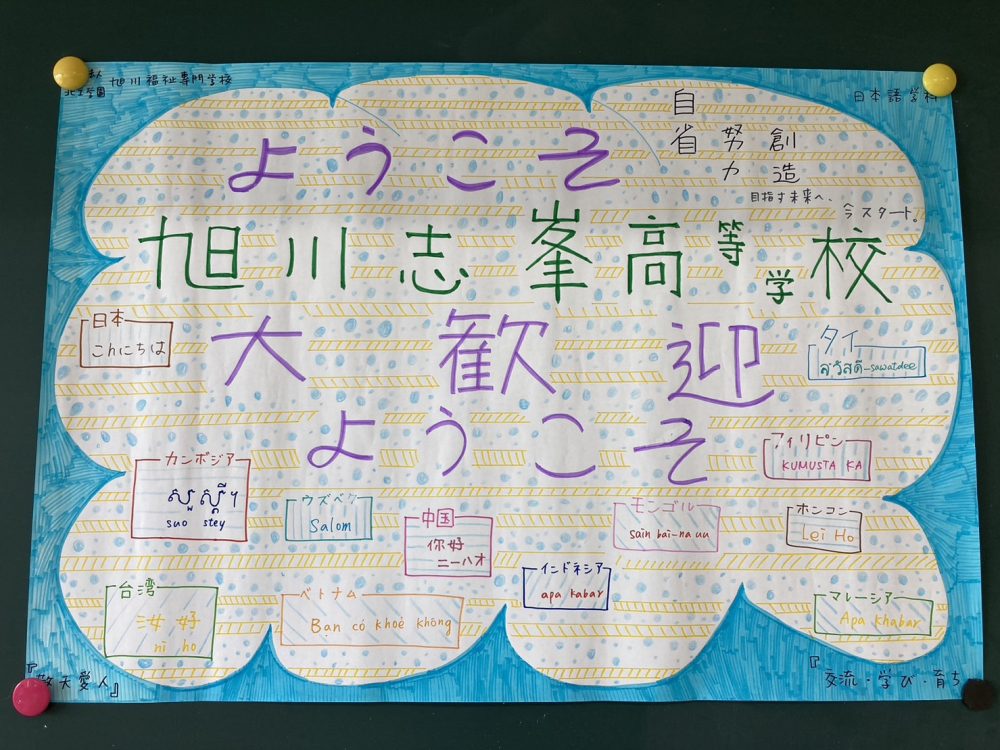 旭川福祉専門学校
北工学園
日本語学科
自省
努力
創造
目指す未来へ、
今スタート。
ようこそ
旭川志峯高等学校
大歓迎
ようこそ
日本
こんにちは
タイ
สวัสดี-sawatdee
カンボジア
សួស្តី។
suo stey
ウズベク
Salom
中国
你好
ニーハオ
フィリピン
KUMUSTA KA
モンゴル
sain bai-na uu
ホンコン
Lei Ho
インドネシア
apa kabar
台湾
汝好
ni ho
ベトナム
Bạn có khoẻ không
マレーシアー
Apa khabar
『敬天愛人』
『交流・学び・育ち